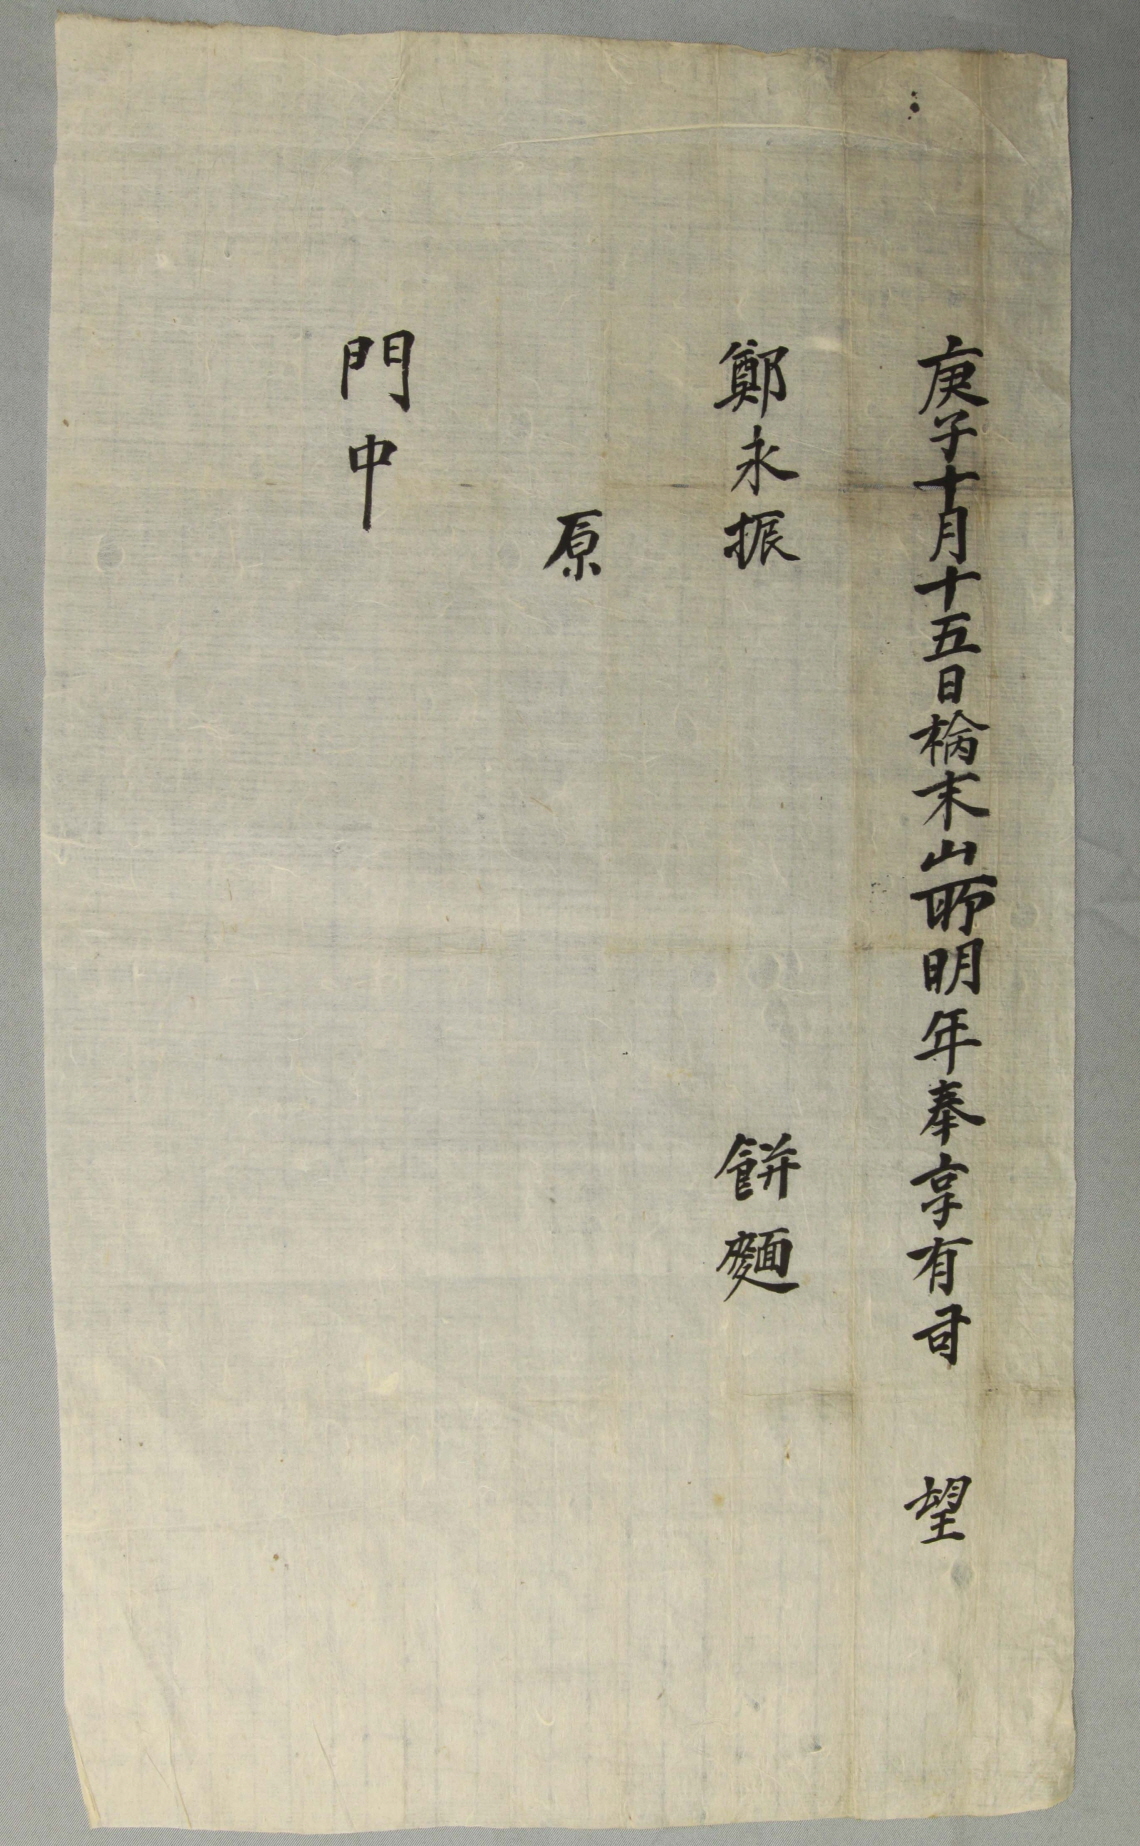 庚子十月十五日末山所明年奉享有司 望
鄭永振 餠麵
原
門中